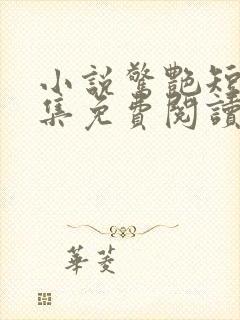 小說驚艷短
集免費閱讀
華菱